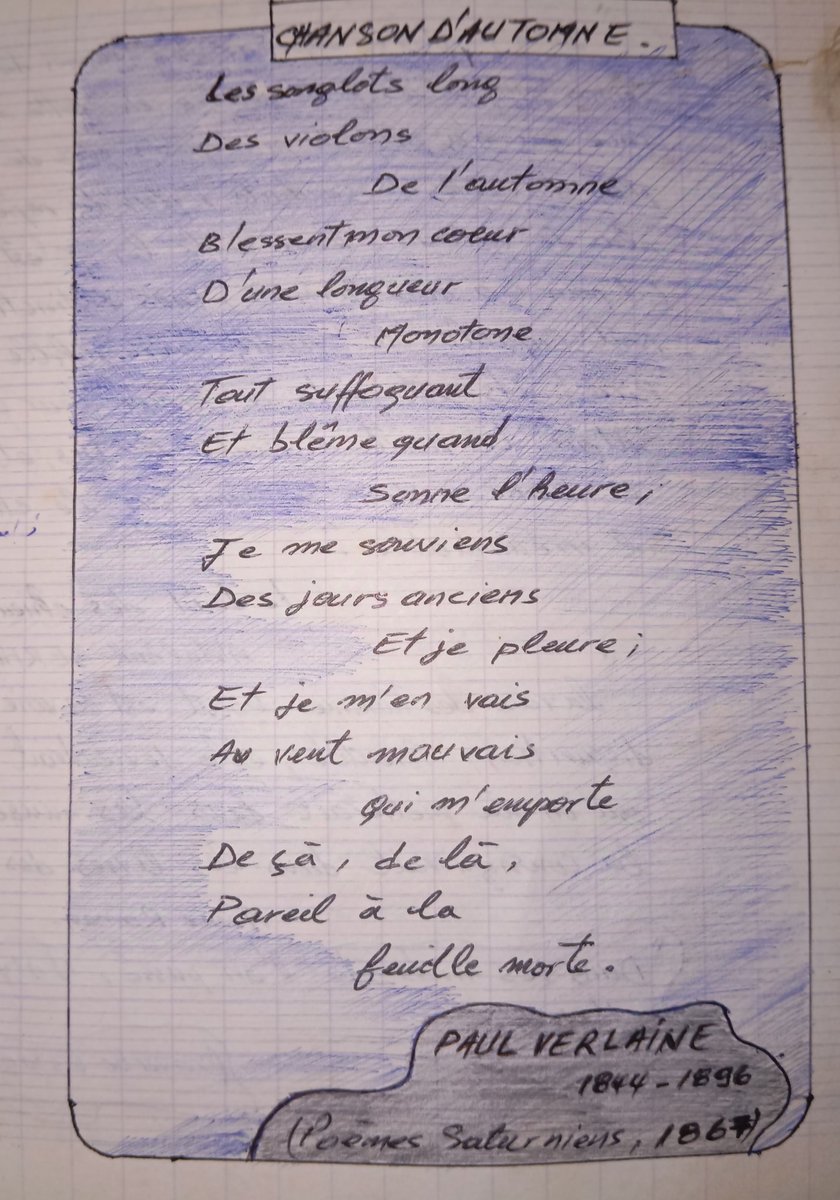 CHANSON D'AUTOMNE.
Les sanglots long
Des violons
De l'automne
Blessent mon coeur
D'une longueur
Monotone
Tout suffoquant
Et blême quand
Sonne l'heure;
Je me souviens
Des jours anciens
Et je pleure;
Et je m'en vais
Au vent mauvais
Qui m'emporte
De çà, de là,
Pareil à la
feuille morte.
PAUL VERLAINE
1844-1896
(Poèmes Saturniens, 1867)